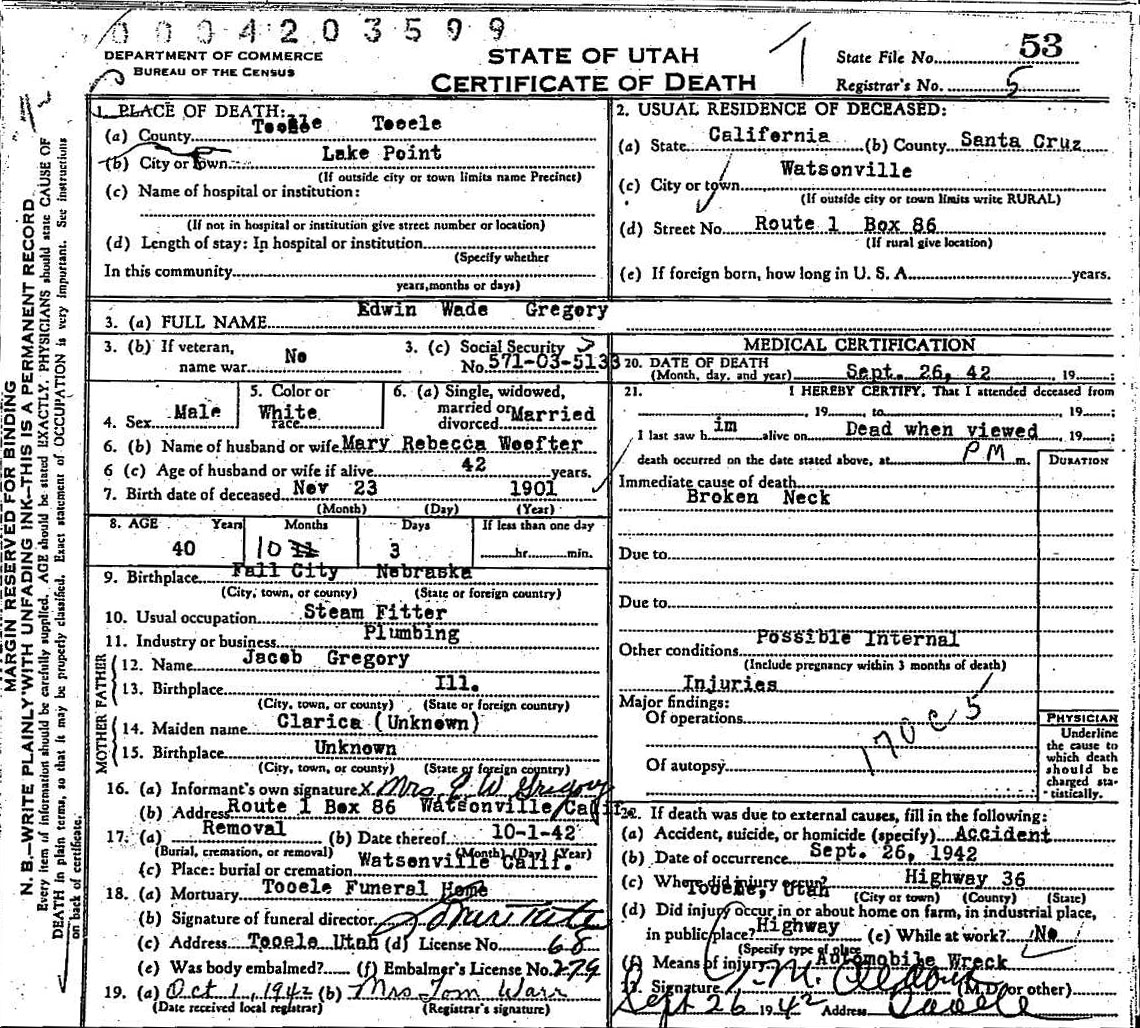 0004203599
DEPARTMENT OF COMMERCE
BUREAU OF THE CENSUS
STATE OF UTAH
CERTIFICATE OF DEATH
State File No. 53
Registrar's No. 5
MARGIN RESERVED FOR BINDING
N. B.—WRITE PLAINLY WITH UNFADING INK—THIS IS A PERMANENT RECORD
Every item of information should be carefully supplied. AGE should be stated EXACTLY. PHYSICIANS should state CAUSE OF
DEATH in plain terms, so that it may be properly classified. Exact statement of OCCUPATION is very important. See instructions
on back of certificate.
1. PLACE OF DEATH:
(a) County Tooele Tooele
(b) City or Town Lake Point
(If outside city or town limits name Precinct)
(c) Name of hospital or institution:
(If not in hospital or institution give street number or location)
(d) Length of stay: In hospital or institution
(Specify whether
In this community
years, months or days)
2. USUAL RESIDENCE OF DECEASED:
(a) State California (b) County Santa Cruz
(c) City or town Watsonville
(If outside city or town limits write RURAL)
(d) Street No. Route 1 Box 86
(If rural give location)
(e) If foreign born, how long in U. S. A. years.
3. (a) FULL NAME Edwin Wade Gregory
3. (b) If veteran, name war No
3. (c) Social Security No. 571-03-5133
4. Sex Male
5. Color or race White
6. (a) Single, widowed, married or divorced Married
6. (b) Name of husband or wife Mary Rebecca Woofter
6 (c) Age of husband or wife if alive 42 years.
7. Birth date of deceased Nov 23 1901
(Month) (Day) (Year)
8. AGE Years Months Days If less than one day
40 10 11 3 hr. min.
9. Birthplace Fall City Nebraska
(City, town, or county) (State or foreign country)
10. Usual occupation Steam Fitter
11. Industry or business Plumbing
FATHER
12. Name Jacob Gregory
13. Birthplace Ill.
(City, town, or county) (State or foreign country)
MOTHER
14. Maiden name Clarica (Unknown)
15. Birthplace Unknown
(City, town, or county) (State or foreign country)
16. (a) Informant's own signature x Mrs E W Gregory
(b) Address Route 1 Box 86 Watsonville, Calif.
17. (a) Removal (b) Date thereof 10-1-42
(Burial, cremation, or removal) (Month) (Day) (Year)
(c) Place: burial or cremation Watsonville Calif.
18. (a) Mortuary Tooele Funeral Home
(b) Signature of funeral director
(c) Address Tooele Utah (d) License No. 68
(e) Was body embalmed? (f) Embalmer's License No. 279
19. (a) Oct 1, 1942 (b) Mrs Tom Warr
(Date received local registrar) (Registrar's signature)
MEDICAL CERTIFICATION
20. DATE OF DEATH
(Month, day, and year) Sept. 26, 42, 19
21. I HEREBY CERTIFY, That I attended deceased from
, 19 , to , 19 ;
I last saw him alive on Dead when viewed, 19 ;
death occurred on the date stated above, at PM m.
DURATION
Immediate cause of death
Broken Neck
Due to
Due to
Other conditions Possible Internal
(Include pregnancy within 3 months of death)
Injuries
Major findings:
Of operations
170c5
Of autopsy
PHYSICIAN
Underline
the cause to
which death
should be
charged sta-
tistically.
22. If death was due to external causes, fill in the following:
(a) Accident, suicide, or homicide (specify) Accident
(b) Date of occurrence Sept. 26, 1942
(c) Where did injury occur? Tooele, Utah Highway 36
(City or town) (County) (State)
(d) Did injury occur in or about home on farm, in industrial place,
in public place? Highway (e) While at work? No
(Specify type of place
(f) Means of injury Automobile Wreck
Signature (M.D. or other)
Sept 26 1942 Address Tooele